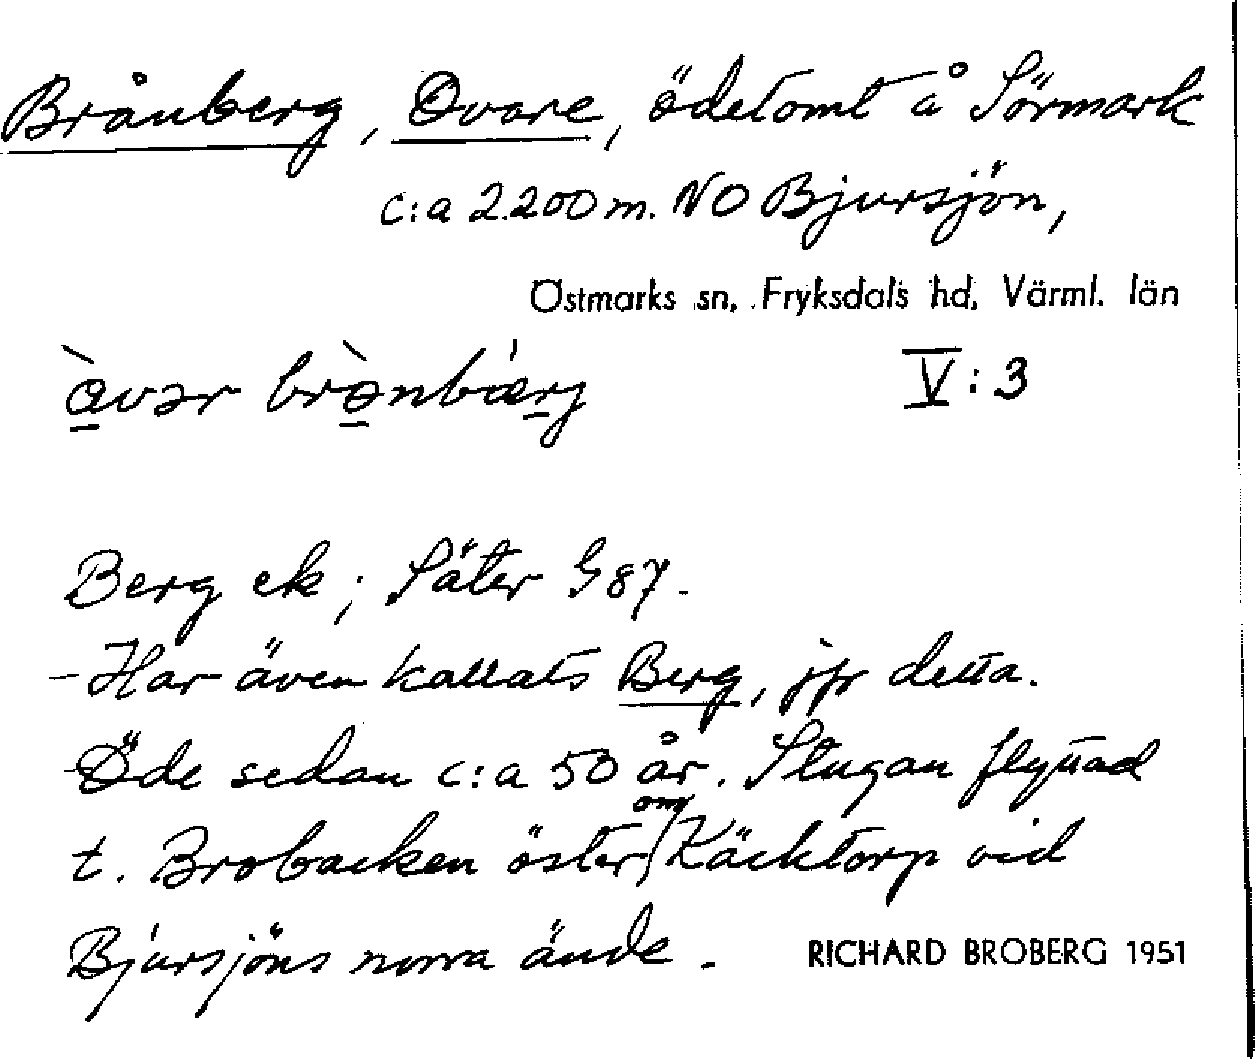 Brånberg, Ovare, ödetomt å Sörmark
c:a 2.200 m. NO Bjursjön,
Östmarks sn, Fryksdals hd, Värml. län
àvər brànbǽrj V:3
Berg ek; Säter G 87.
- Har även kallats Berg, jfr detta.
- Öde sedan c:a 50 år. Stugan flyttad
t. Brobacken öster om Käcktorp vid
Bjursjöns norra ände.
RICHARD BROBERG 1951